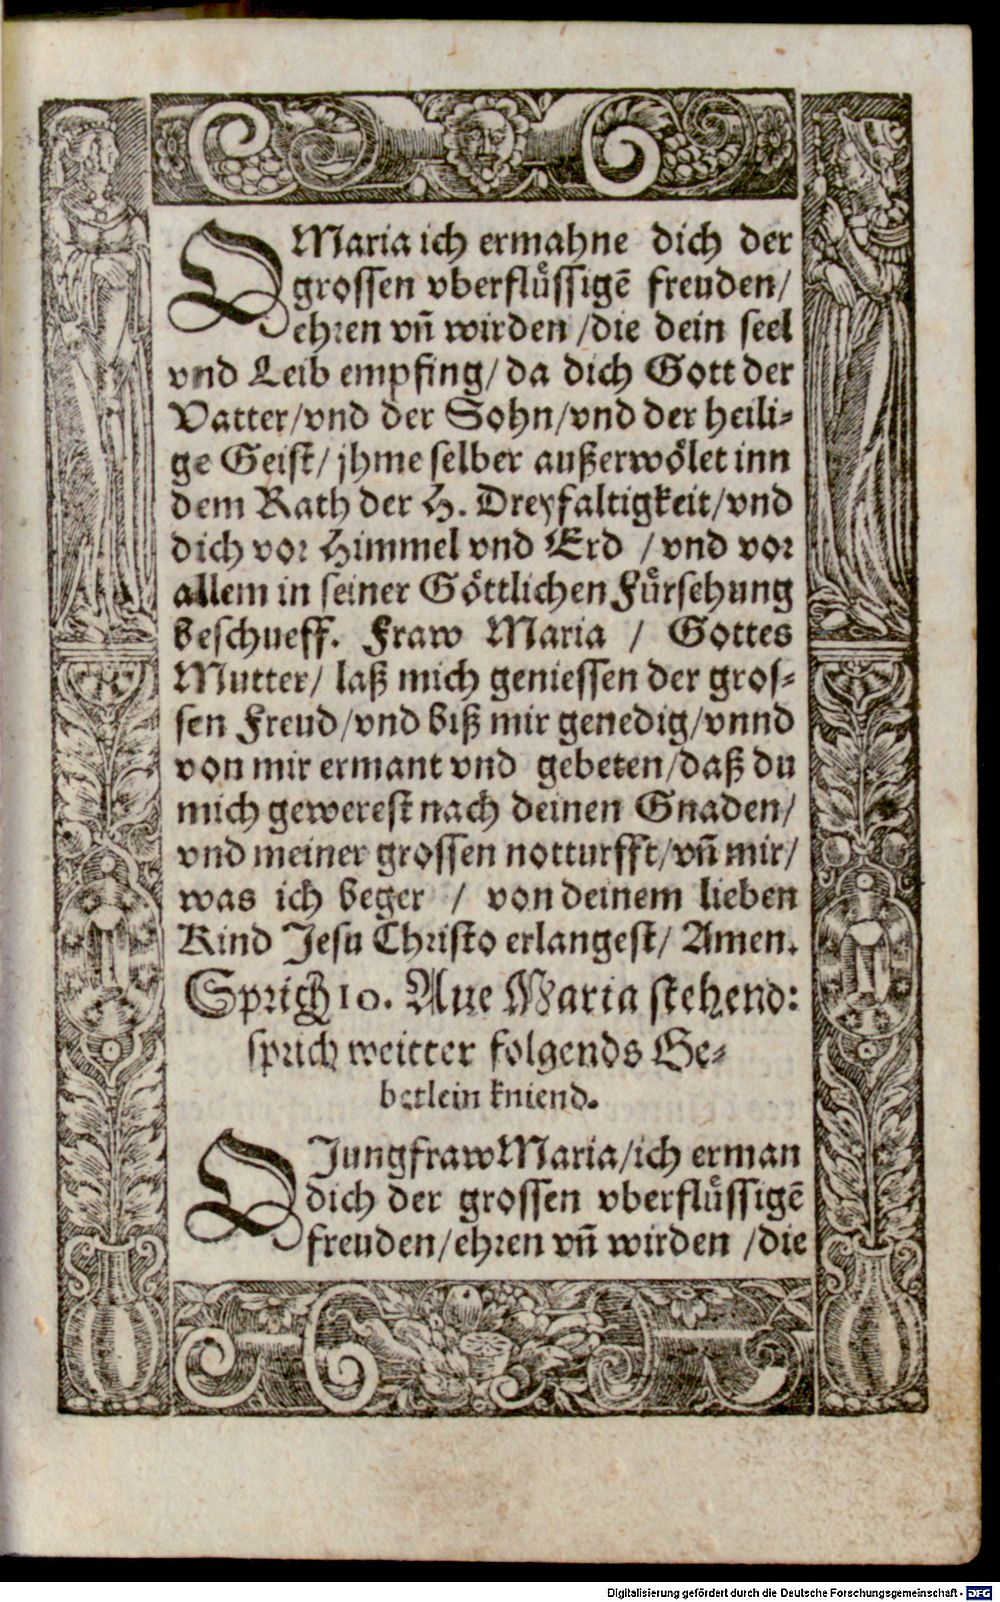 O Maria ich ermahne dich der
grossen vberflüssigē freuden/
ehren vñ wirden /die dein seel
vnd Leib empfing/ da dich Gott der
Vatter/vnd der Sohn/vnd der heili-
ge Geist/ jhme selber außerwölet inn
dem Rath der H. Dreyfaltigkeit/vnd
dich vor Himmel vnd Erd /vnd vor
allem in seiner Göttlichen Fürsehung
beschueff. Fraw Maria / Gottes
Mutter/ laß mich geniessen der gros-
sen Freud/vnd biß mir genedig/vnnd
von mir ermant vnd gebeten/daß du
mich gewerest nach deinen Gnaden/
vnd meiner grossen notturfft/vñ mir/
was ich beger / von deinem lieben
Kind Jesu Christo erlangest/ Amen.
Sprich 10. Aue Maria stehend:
sprich weitter folgends Ge-
betlein kniend.
O Jungfraw Maria/ich erman
dich der grossen vberflüssigē
freuden/ehren vñ wirden /die
Digitalisierung gefördert durch die Deutsche Forschungsgemeinschaft - DFG